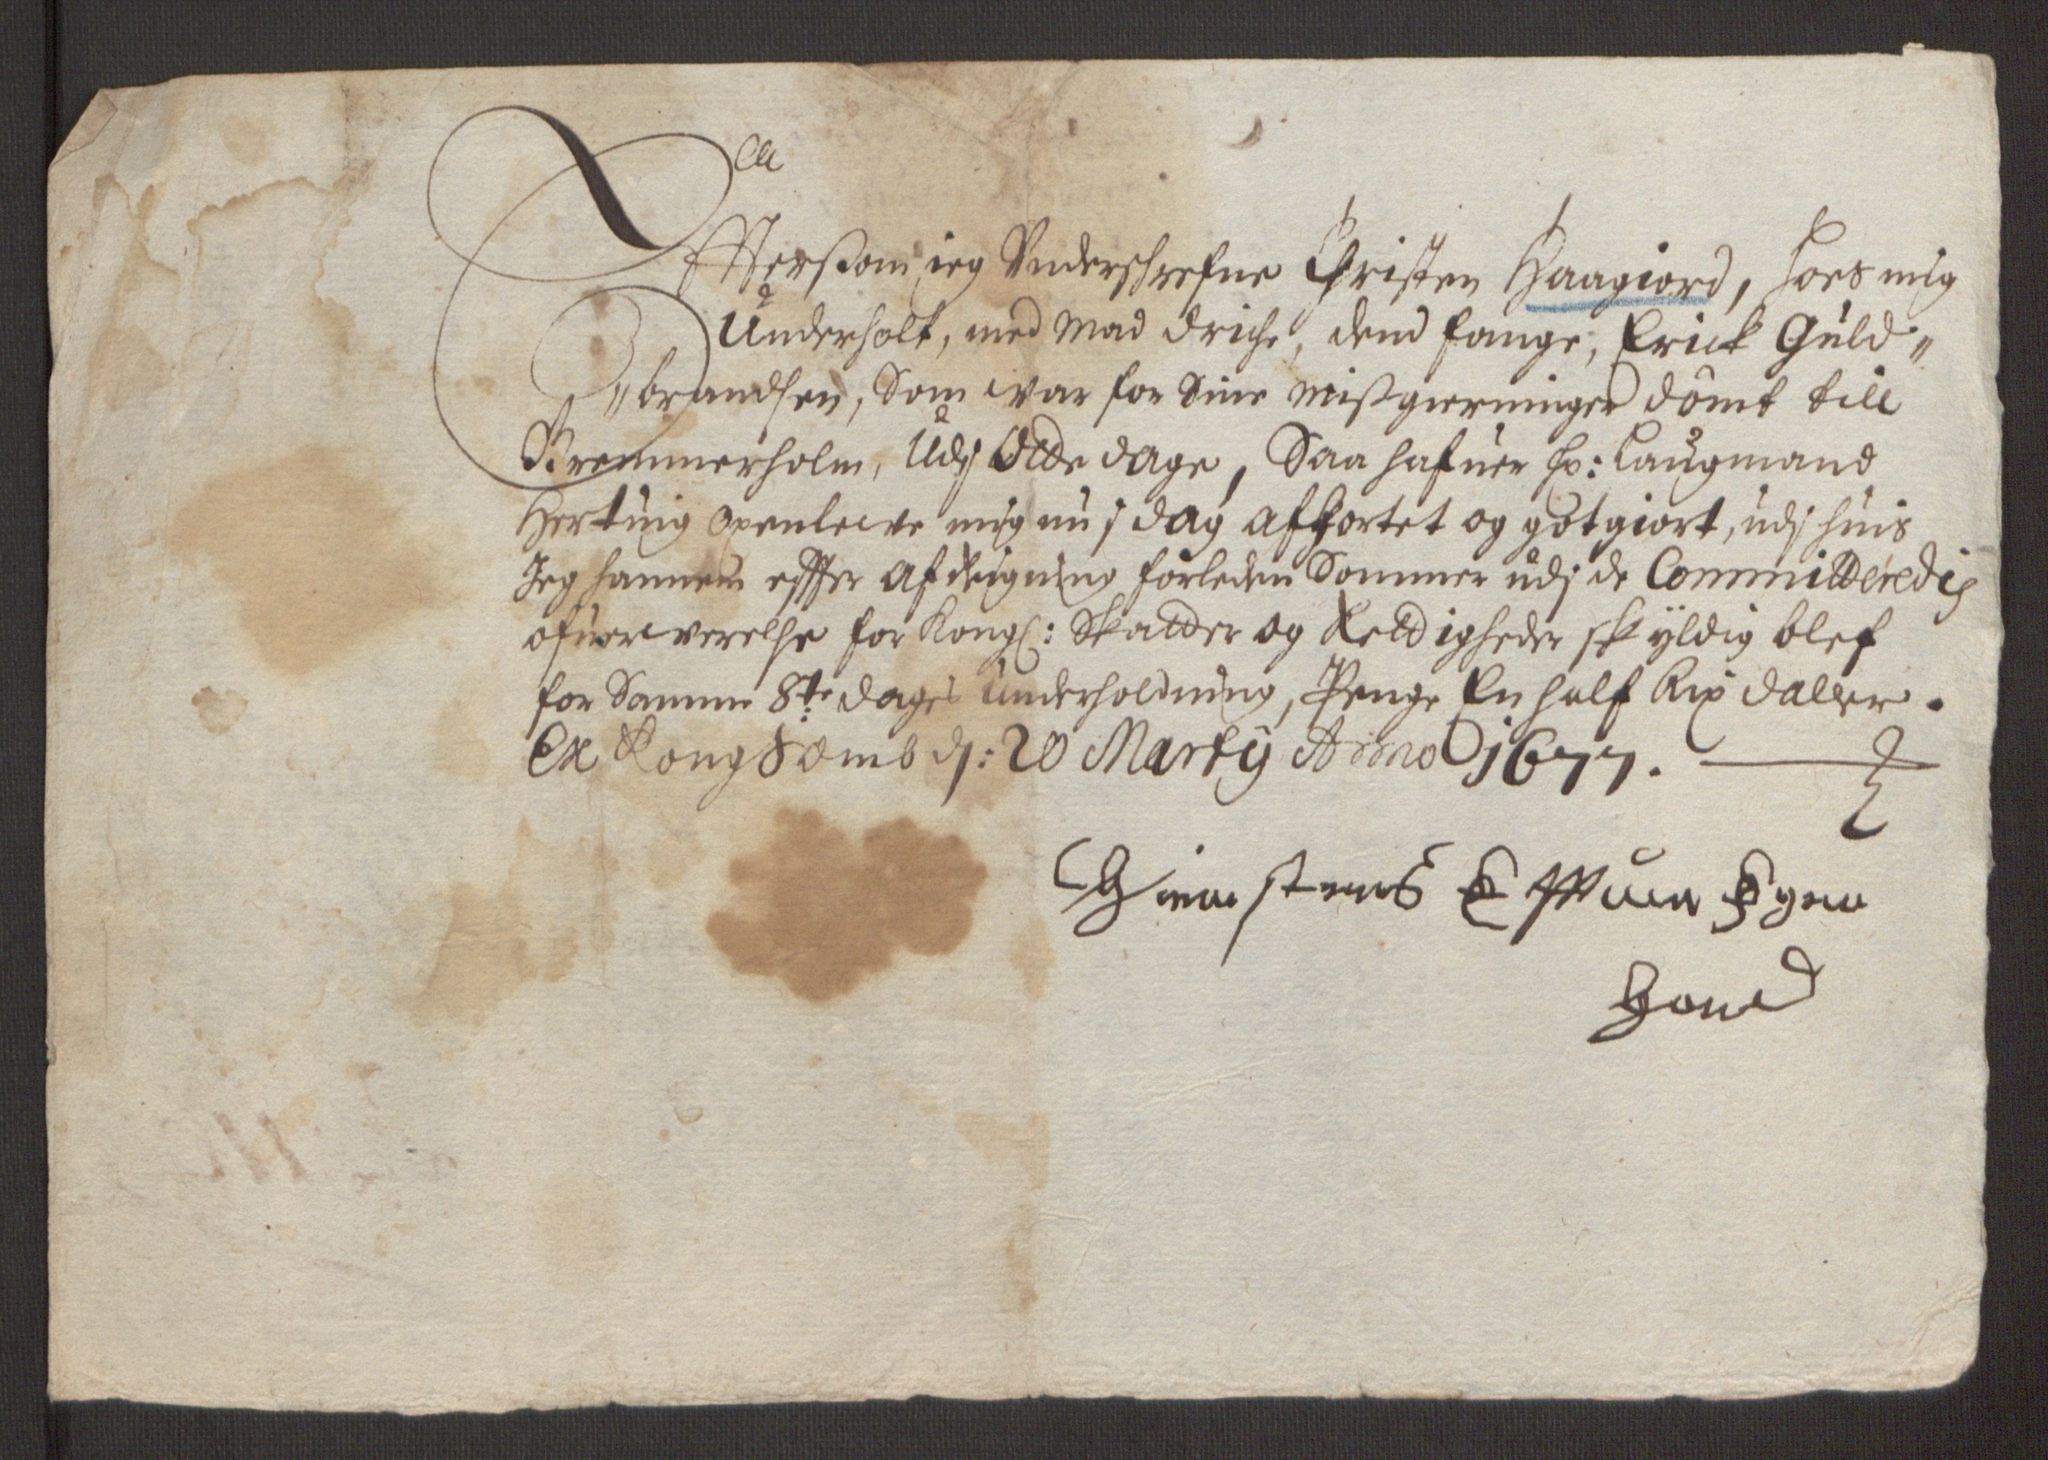 Effterßom ieg Underschrefne Christen Haagiord, hoes mig
Underholt, med Mad driche, dend fange, Erick Guld„
„brandsen, Som war for Sine Mißgierninger dömt till
Bremmerholm, Udj Otte dage, Saa hafuer Hr: Laugmand
Hertuig Openlewe mig nu j dag afkortet og gotgiort, udj huis
Jeg hannem effter afreigning forleden Sommer udj de Committeredis
ofuerwerelse for Kongl: Skatter og Rettigheder skyldig blef
for Samme 8te dages Underholdning, Penge En half Rix daller.
Ex Kongs d: 20 Marty Anno 1677.
Egen
Hand